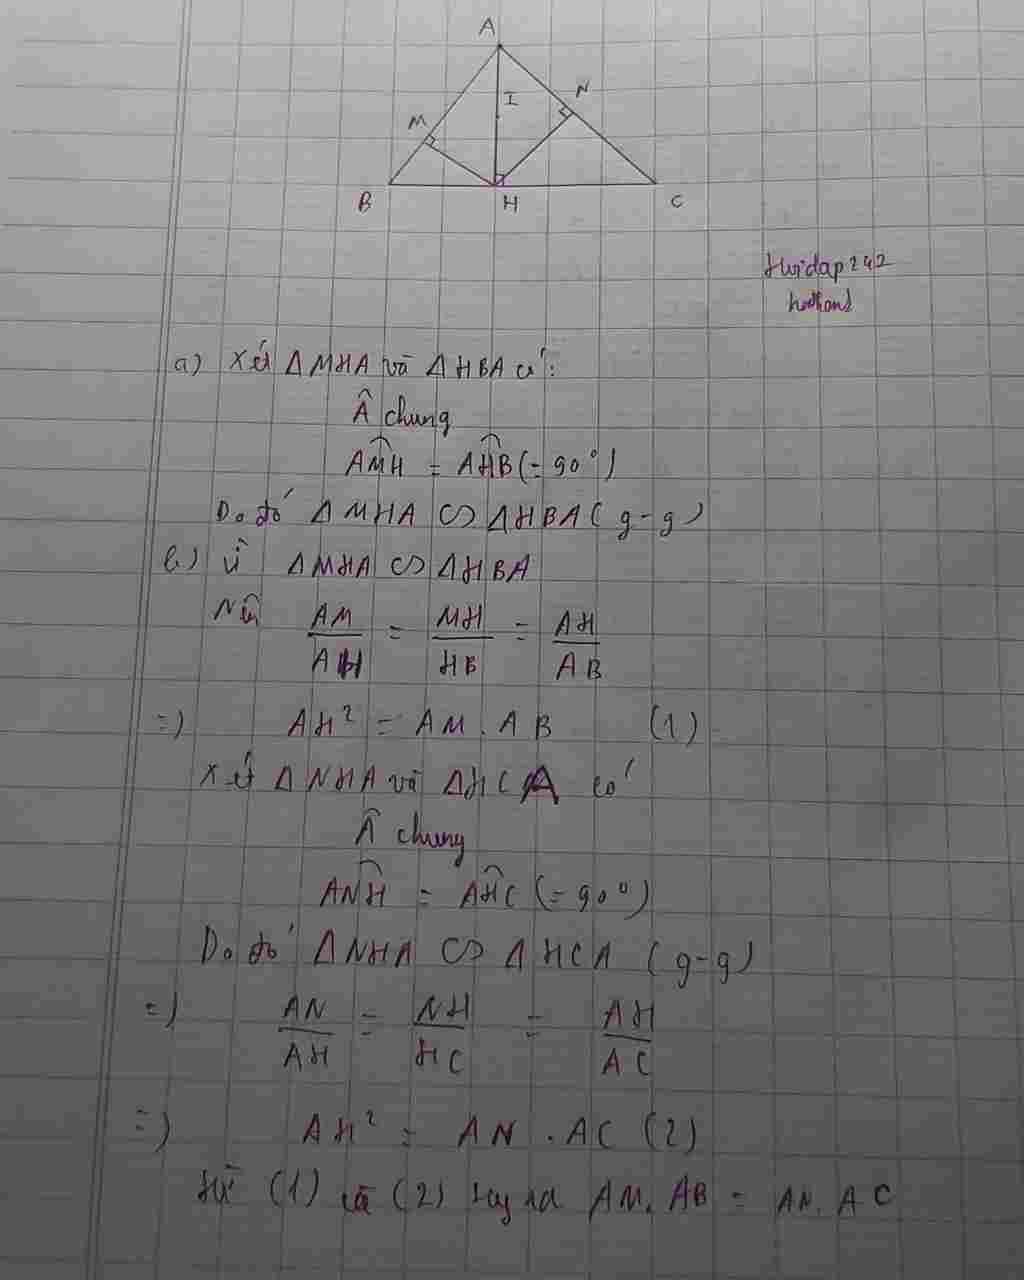 A
I
N
M
B
H
C
hoidap247
a) Xét Δ MHA và Δ HBA có:
Â chung
AM̂H = AĤB (= 90°)
Do đó Δ MHA ∽ Δ HBA ( g-g )
b.) Vì ΔMHA ∽ ΔHBA
Nên AM/AH = MH/HB = AH/AB
=) AH² = AM . AB (1)
Xét Δ NHA và ΔHCA có
Â chung
AN̂H = AĤC (= 90°)
Do đó Δ NHA ∽ Δ HCA ( g-g )
=) AN/AH = NH/HC = AH/AC
=) AH² = AN . AC (2)
từ (1) và (2) suy ra AM. AB = AN. AC